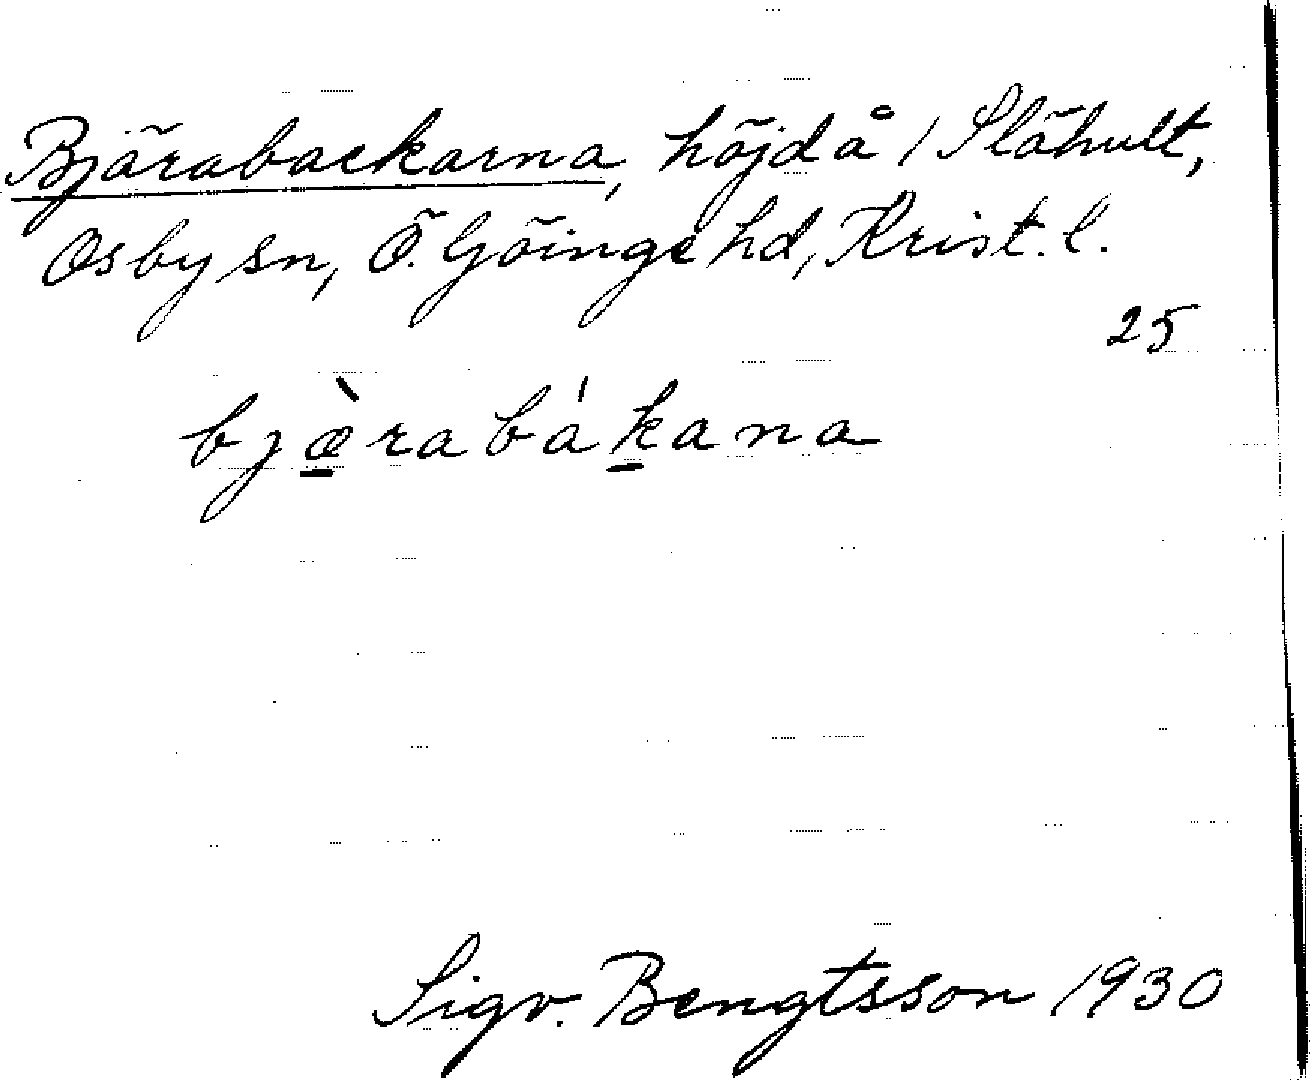 Bjärabackarna, höjd å 1 Slähult,
Osby sn, Ö. Göinge hd, Krist. l.
25
bjæ̀rabákana
Sigv. Bengtsson 1930